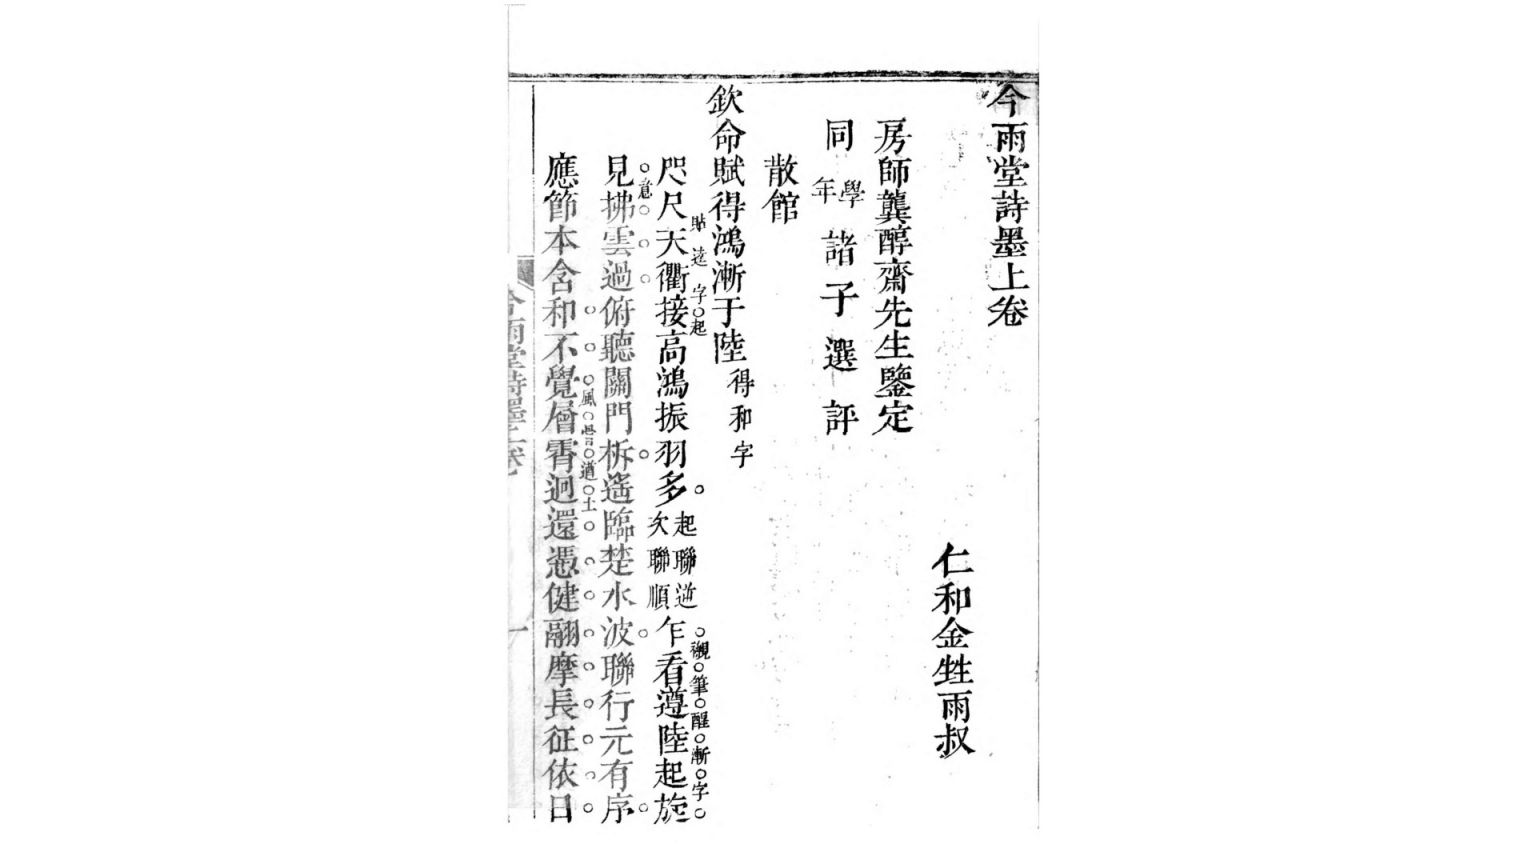 今雨堂詩墨上卷
仁和金甡雨叔
房師龔醇齋先生鑒定
同學年諸子選評
散館
欽命賦得鴻漸于陸得和字
咫尺天衢接高鴻振羽多起聯逆次聯順乍看遵陸起旋
貼逵字起
襯筆醒漸字
見拂雲過俯聽關門柝遙臨楚水波聯行元有序
意
應節本含和不覺層霄迥還憑健翮摩長征依日
風骨遒上
今雨堂詩墨上卷
一